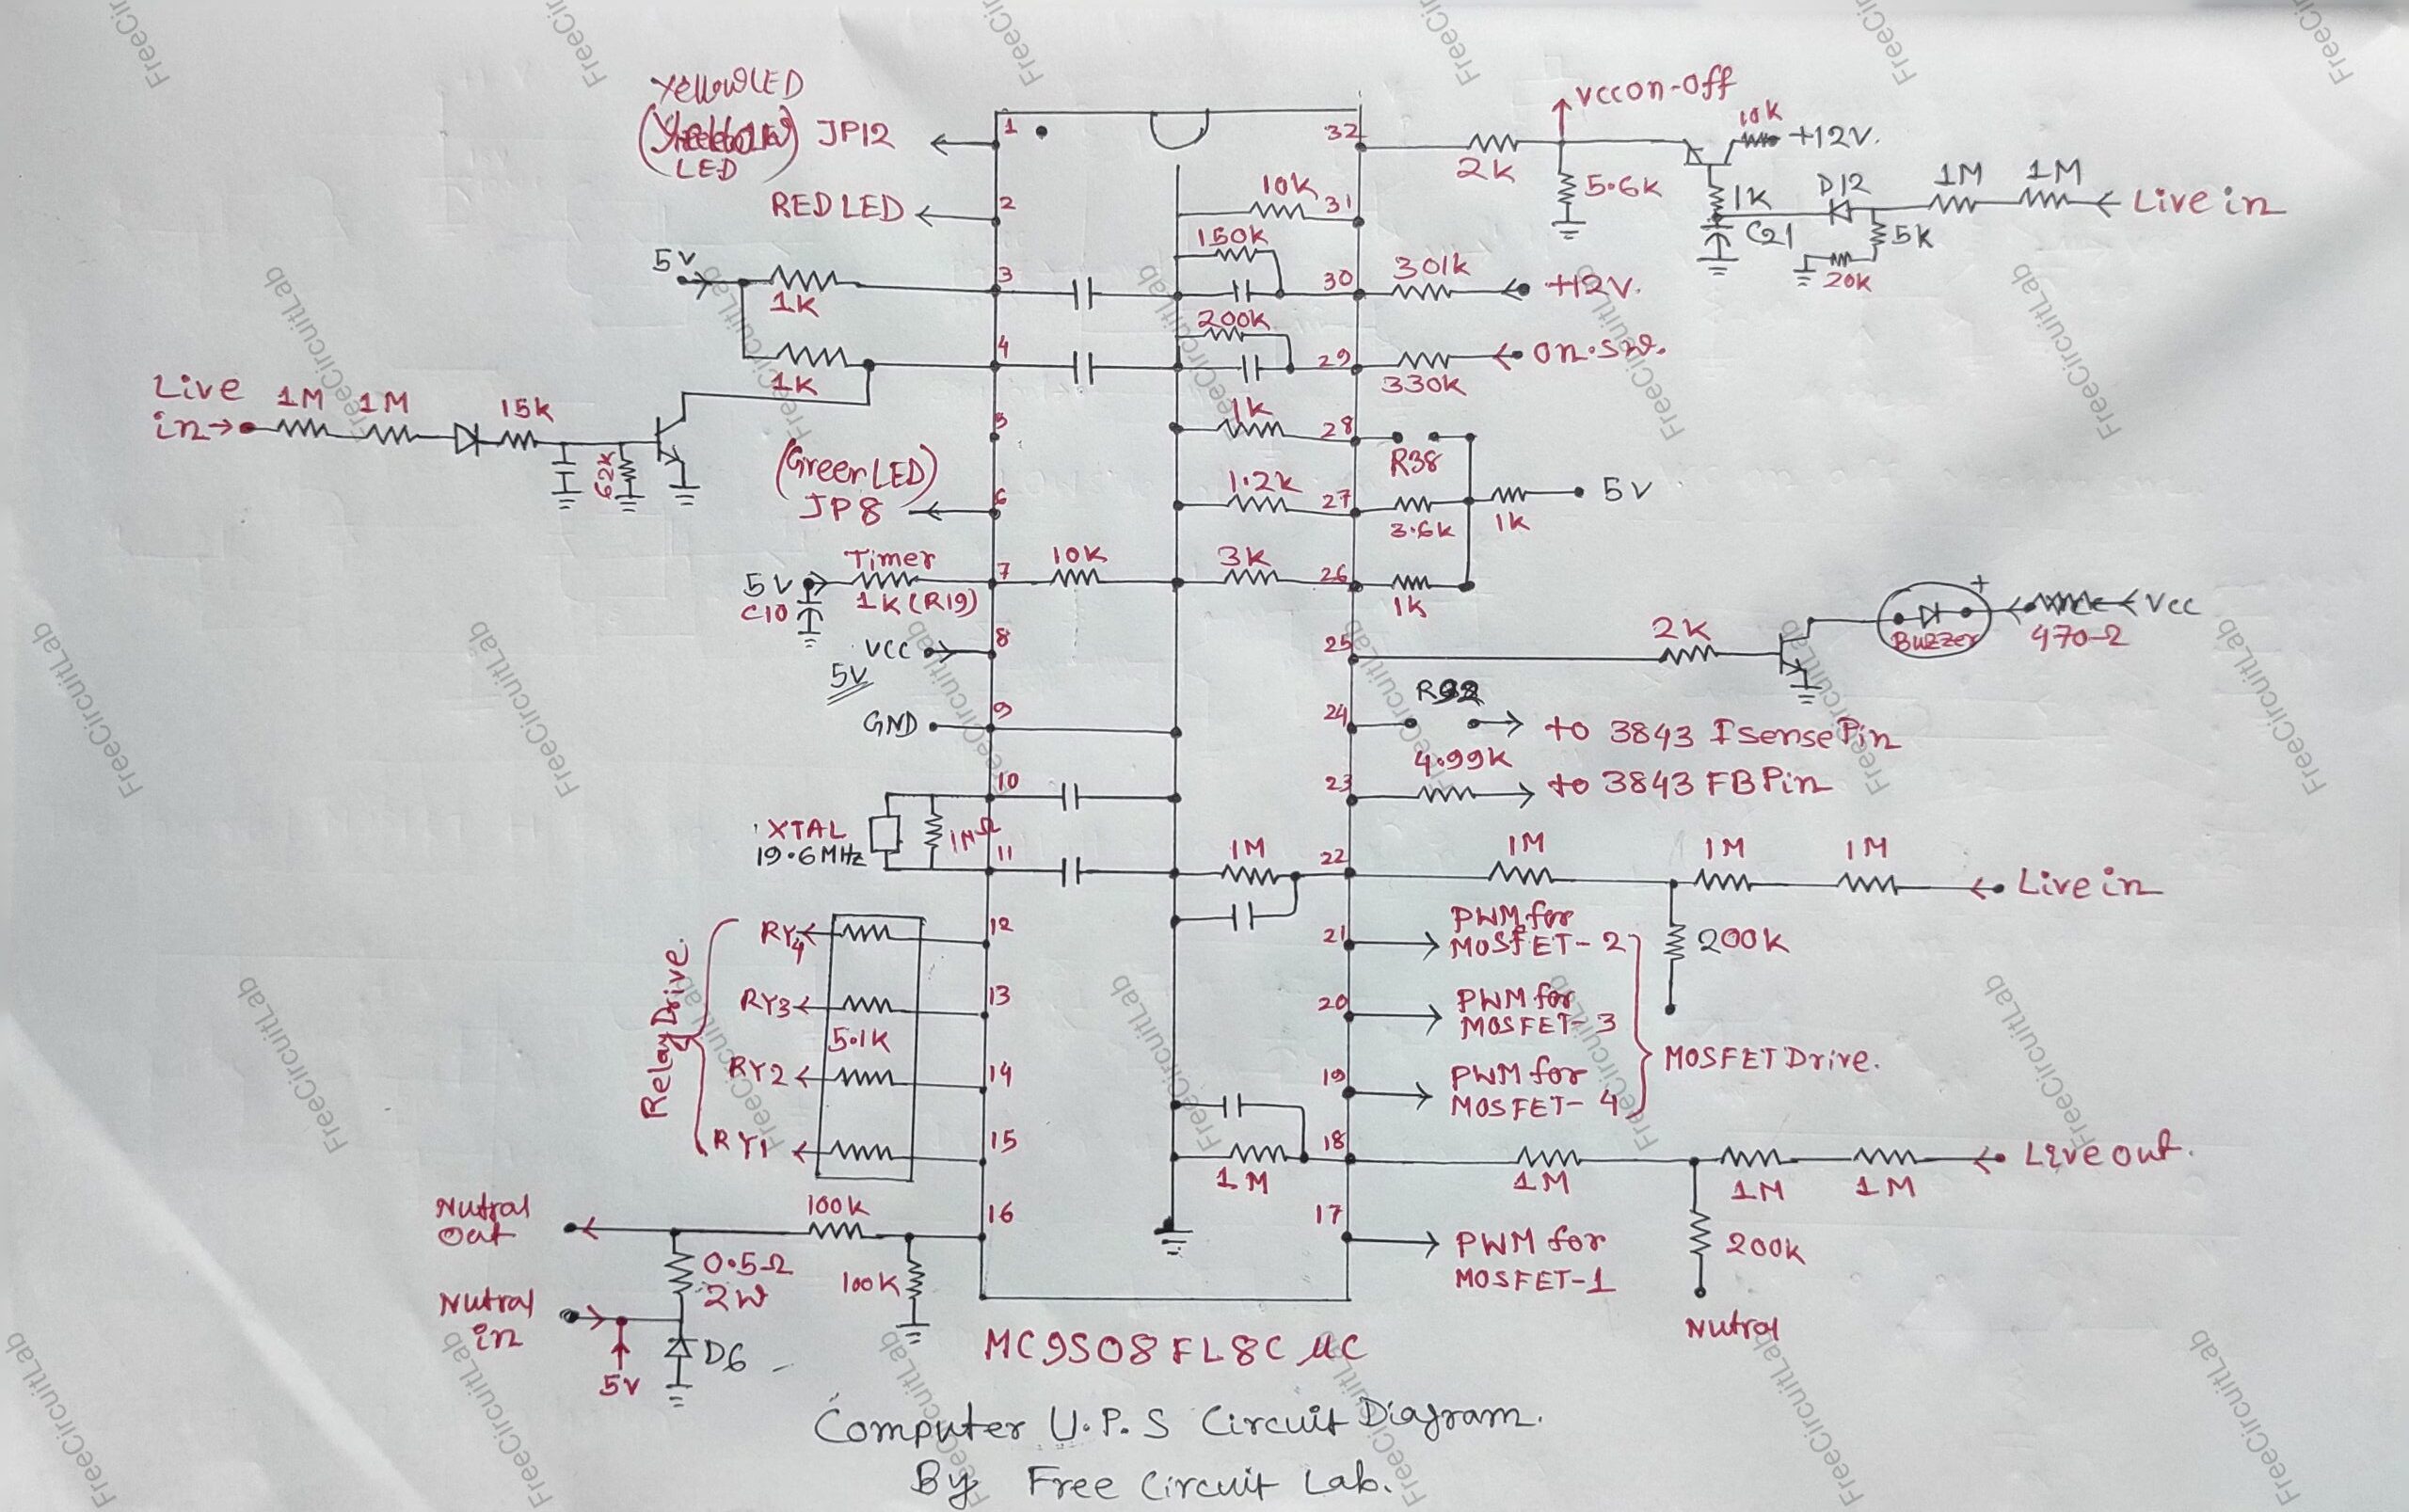 Yellow LED
LED
JP12
RED LED
5v
1K
1K
Live
in
1M
1M
15k
62k
(Green LED)
JP8
Timer
5V
C10
1K (R19)
10K
VCC
5V
GND
XTAL
19.6MHz
1MΩ
Relay Drive.
RY4
RY3
RY2
RY1
5.1K
Nutral
Out
100K
0.5Ω
2W
100K
Nutral
in
5v
D6
1
2
3
4
5
6
7
8
9
10
11
12
13
14
15
16
32
31
30
29
28
27
26
25
24
23
22
21
20
19
18
17
10K
150k
200k
1k
1.2k
3k
1M
1M
2K
Vcc on-off
5.6K
10K
+12V.
1K
C21
D12
1M
1M
Live in
5K
20K
301k
+12V.
330k
on.sw.
R38
3.6k
1K
1K
5V
2K
Buzzer
+
470Ω
Vcc
to 3843 Isense Pin
4.99K
to 3843 FB Pin
1M
1M
1M
Live in
200K
PWM for
MOSFET-2
PWM for
MOSFET-3
PWM for
MOSFET-4
MOSFET Drive.
1M
1M
1M
Live out.
200k
Nutral
PWM for
MOSFET-1
MC9S08FL8C UC
Computer U.P.S Circuit Diagram.
By Free Circuit Lab.
FreeCircuitLab